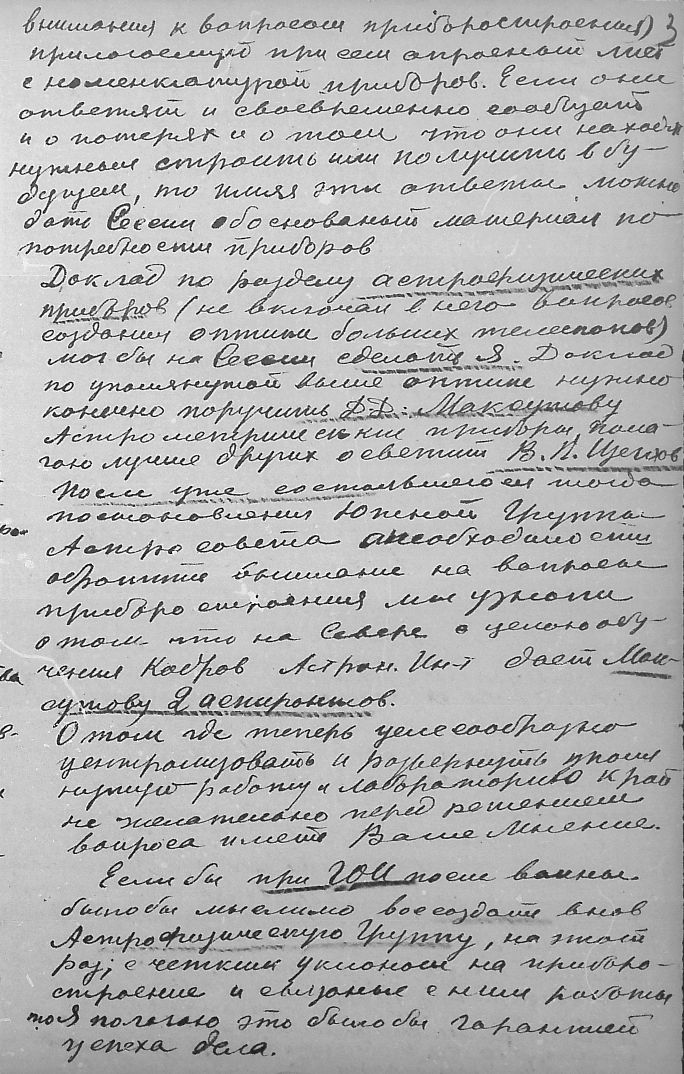 внимания к вопросам приборостроения) 3
прилагаемый при сем опросный лист
с номенклатурой приборов. Если они
ответят и своевременно сообщат
и о потерях и о том что они находят
нужным строить или получить в бу-
дущем, то имея эти ответы можно
дать Сессии обоснованый материал по
потребности приборов
Доклад по разделу астрофизических
приборов (не включая в него вопросов
создания оптики больших телескопов)
мог бы на Сессии сделать я. Доклад
по упомянутой выше оптике нужно
конечно поручить Д.Д. Максутову
Астрометрические приборы, пола-
гаю лучше других осветит В.П. Щеглов
После уже состоявшегося тогда
постановления Южной Группы
Астросовета о необходимости
обратить внимание на вопросы
приборостроения мы узнали
о том что на Севере с целью обу-
чения Кадров Астрон. Ин-т дает Мак-
сутову 2 аспирантов.
О том где теперь целесообразно
централизовать и развернуть упомя
нутую работу и лабораторию край
не желательно перед решением
вопроса иметь Ваше Мнение.
Если бы при ГОИ после войны
было бы мыслимо воссоздать вновь
Астрофизическую Группу, на этот
раз, с четким уклоном на приборо-
строение и связаные с ним работы
то Я полагаю это было бы гарантией
успеха дела.